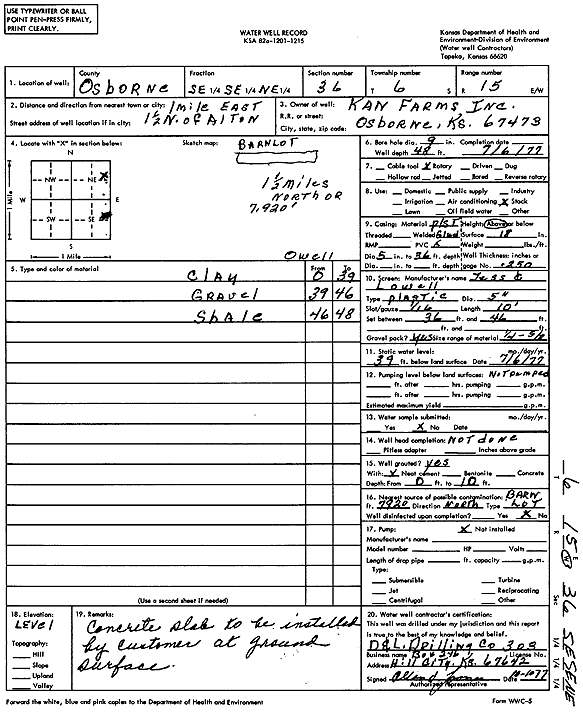 USE TYPEWRITER OR BALL
POINT PEN-PRESS FIRMLY,
PRINT CLEARLY.
WATER WELL RECORD
KSA 82a-1201-1215
Kansas Department of Health and
Environment-Division of Environment
(Water well Contractors)
Topeka, Kansas 66620
1. Location of well: County Osborne Fraction SE 1/4 SE 1/4 NE 1/4 Section number 36 Township number T 6 S Range number R 15 E/W
2. Distance and direction from nearest town or city: 1 mile EAST
Street address of well location if in city: 1½ N. of ALTON
3. Owner of well: KAN FARMS Inc.
R.R. or street:
City, state, zip code: Osborne, Ks. 67473
4. Locate with "X" in section below:
N
NW NE X
W E
SW SE
S
1 Mile
1 Mile
Sketch map:
BARNLOT
1½ miles
NORTH OR
7,920'
O well
5. Type and color of material From To
CLAY 0 39
GRAVEL 39 46
Shale 46 48
(Use a second sheet if needed)
6. Bore hole dia. 9 in. Completion date
Well depth 48 ft. 7/6/77
7. Cable tool X Rotary Driven Dug
Hollow rod Jetted Bored Reverse rotary
8. Use: Domestic Public supply Industry
Irrigation Air conditioning X Stock
Lawn Oil field water Other
9. Casing: Material plst Height: Above or below
Threaded Welded Glued Surface 18 in.
RMP PVC Weight lbs./ft.
Dia. 5 in. to 36 ft. depth Wall Thickness: inches or
Dia. in. to ft. depth gage No. .250
10. Screen: Manufacturer's name Jess &
Lowell
Type plastic Dia. 5"
Slot/gauze 1/16 Length 10'
Set between 36 ft. and 46 ft.
ft. and ft.
Gravel pack? yes Size range of material
11. Static water level: mo./day/yr.
39 ft. below land surface Date 7/6/77
12. Pumping level below land surfaces: NOT pumped
ft. after hrs. pumping g.p.m.
ft. after hrs. pumping g.p.m.
Estimated maximum yield g.p.m.
13. Water sample submitted: mo./day/yr.
Yes X No Date
14. Well head completion: NOT done
Pitless adapter Inches above grade
15. Well grouted? yes
With: Neat cement Bentonite Concrete
Depth: From 0 ft. to 10 ft.
16. Nearest source of possible contamination: BARN
ft. 7920 Direction North Type LOT
Well disinfected upon completion? Yes X No
17. Pump: X Not installed
Manufacturer's name
Model number HP Volts
Length of drop pipe ft. capacity g.p.m.
Type:
Submersible Turbine
Jet Reciprocating
Centrifugal Other
18. Elevation:
LEVEL
Topography:
Hill
Slope
Upland
Valley
19. Remarks:
Concrete slab to be installed
by customer at ground
surface.
20. Water well contractor's certification:
This well was drilled under my jurisdiction and this report
is true to the best of my knowledge and belief.
D&L Drilling Co 309
Business name Box 246 License No.
Address Hill City, Ks. 67642
Signed Date 10-10-77
Authorized representative
T 6
R 15 E W
Sec 36
1/4 1/4 1/4 SE SE NE
Forward the white, blue and pink copies to the Department of Health and Environment
Form WWC-5